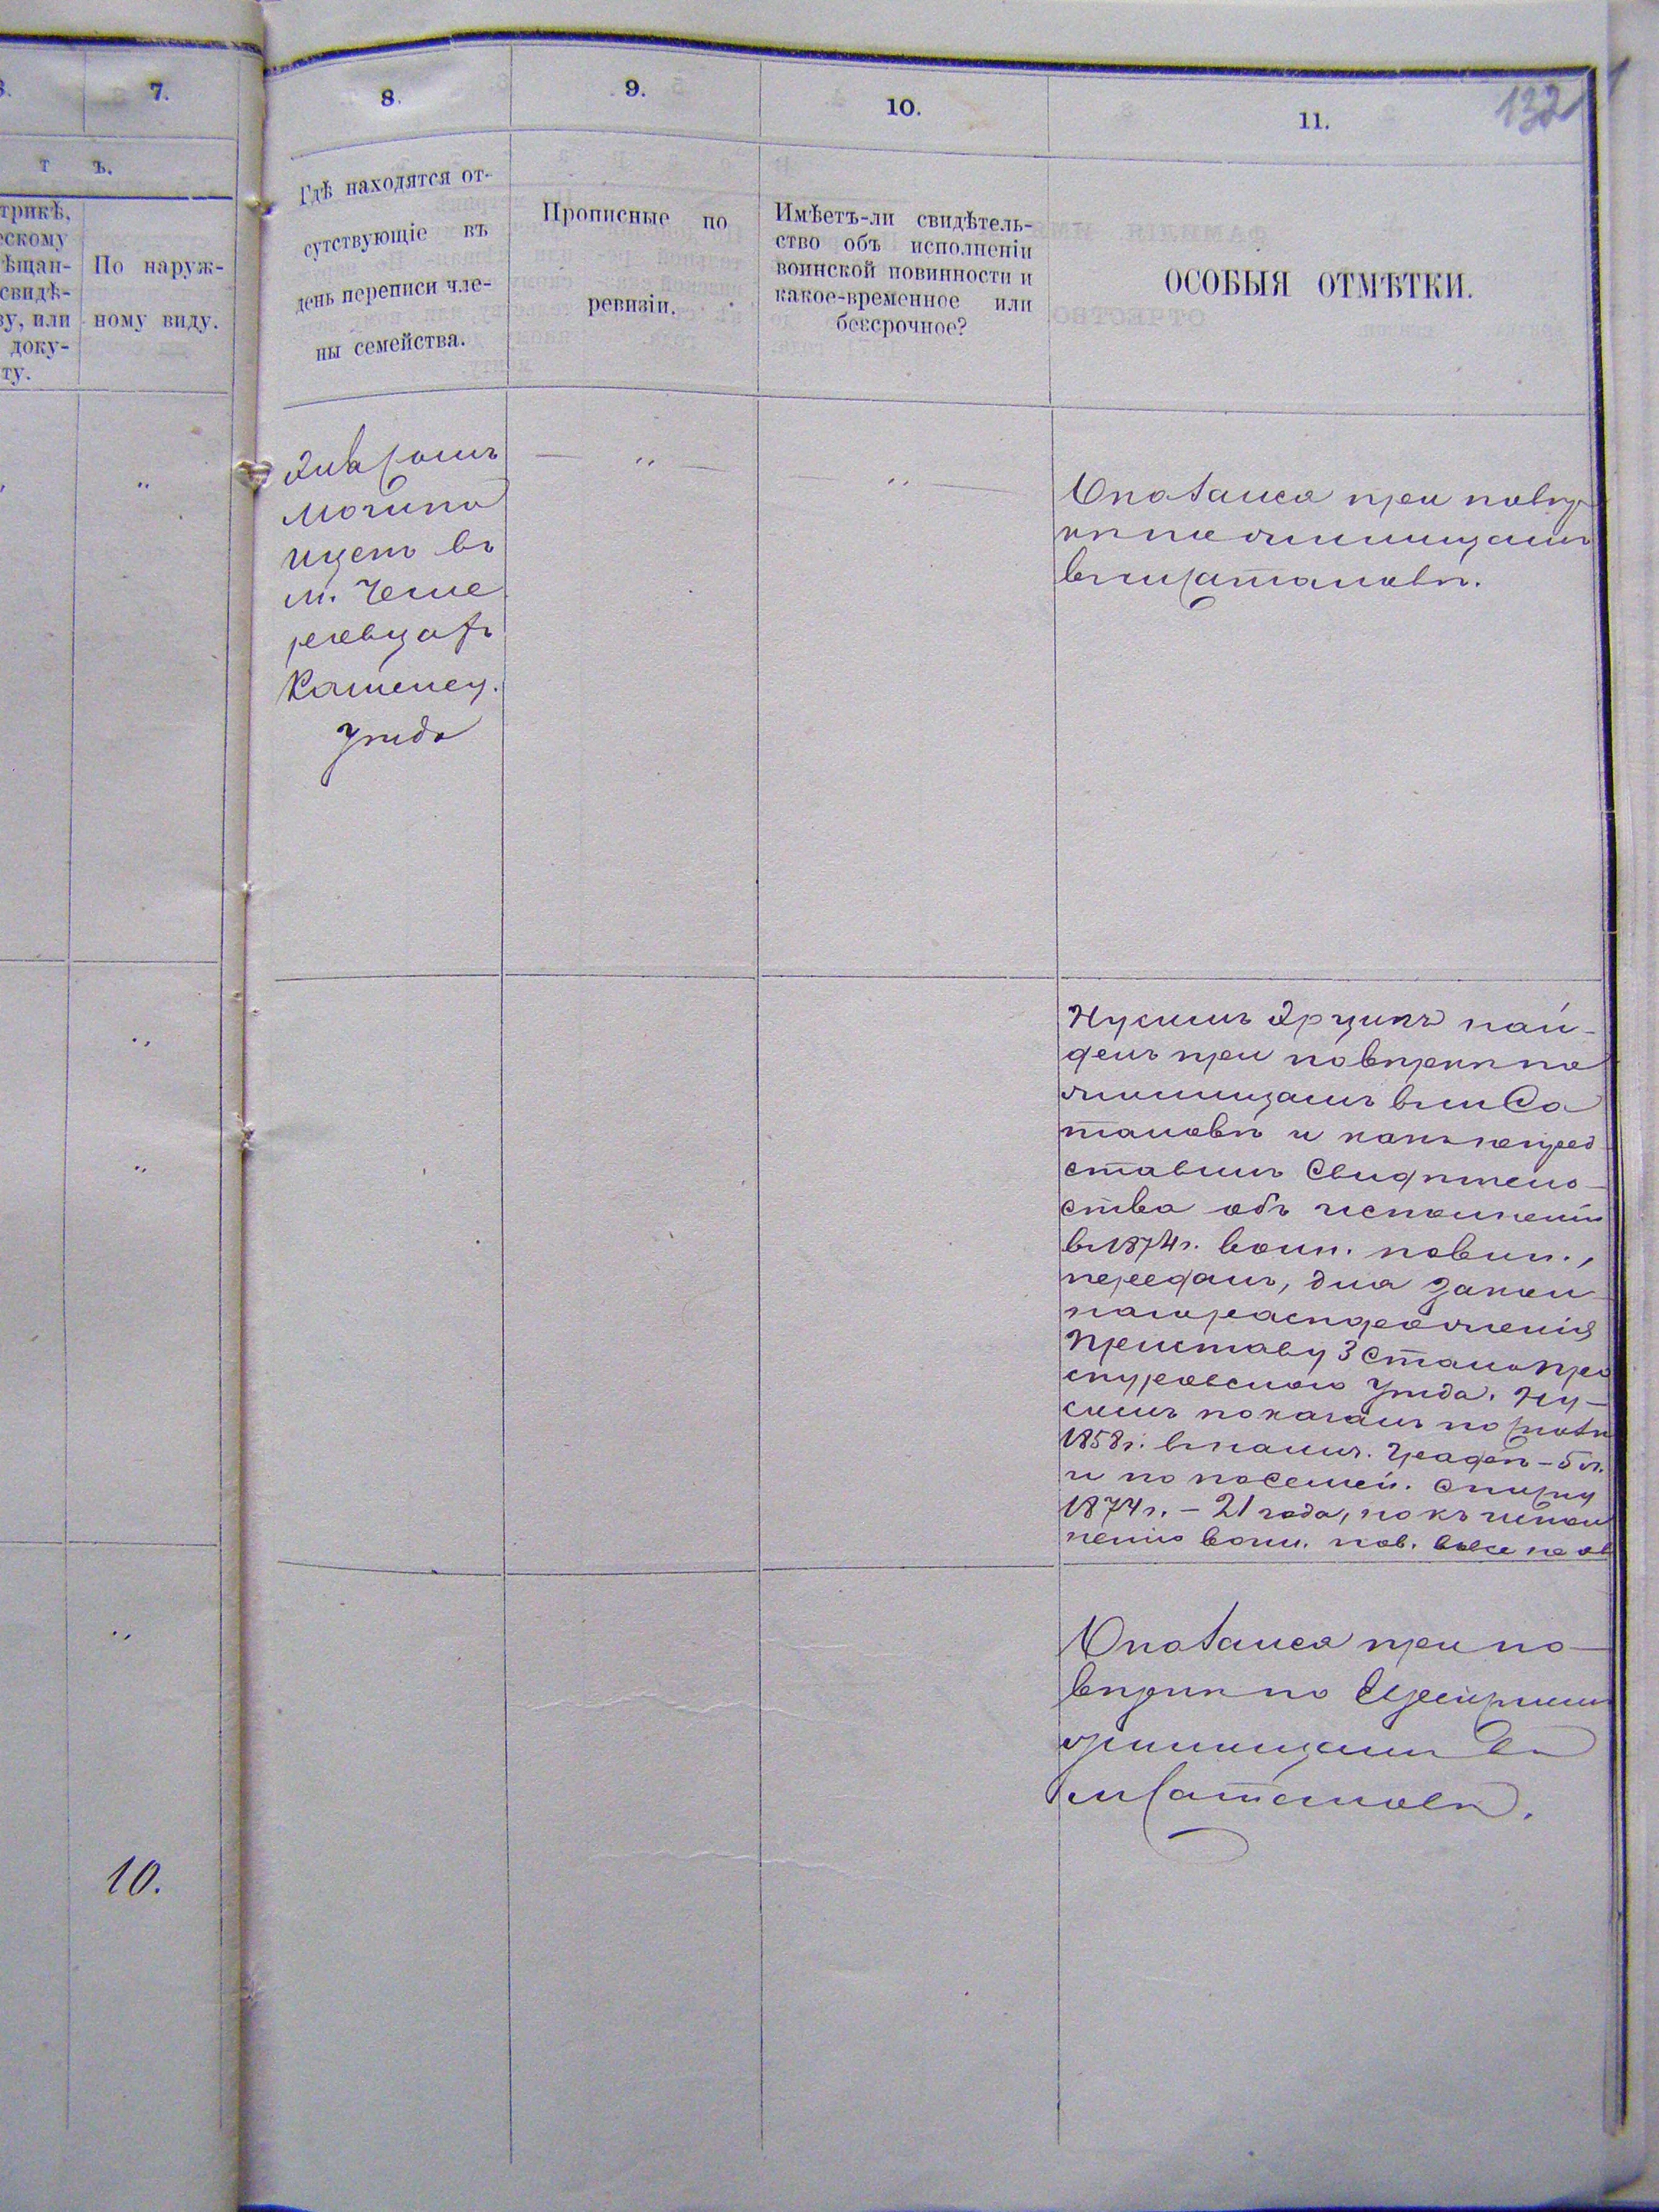 132
6.
7.
8.
9.
10.
11.
т ъ.
трикѣ,
ескому
ѣщан-
свидѣ-
ву, или
доку-
ту.
По наруж-
ному виду.
Гдѣ находятся от-
сутствующіе въ
день переписи чле-
ны семейства.
Прописные по
ревизіи.
Имѣетъ-ли свидѣтель-
ство объ исполненіи
воинской повинности и
какое-временное или
безсрочное?
ОСОБЫЯ ОТМѢТКИ.
"
въ
м. Чеме
ровцахъ
Каменец.
уѣзда
— " —
" —
Оказался при повѣр
кѣ по
въ м Сатановѣ.
"
"
Нусимъ най-
денъ при повѣркѣ по
въ м Са
тановѣ и какъ непред
ставилъ свидѣтель-
ства объ исполненіи
въ 1874 г. воин. повин.,
переданъ, для закон
наго распоряженія
Приставу 3 стана Про
скуровскаго уѣзда. Ну-
симъ показанъ по сказкѣ
1858 г. въ налич. графѣ - 5 л.
и по посемей. списку
1874 г. - 21 года, но къ испол
ненію воин. пов. вовсе не
"
10.
Оказался при по-
вѣркѣ по Еврейскимъ
въ
м Сатановѣ.